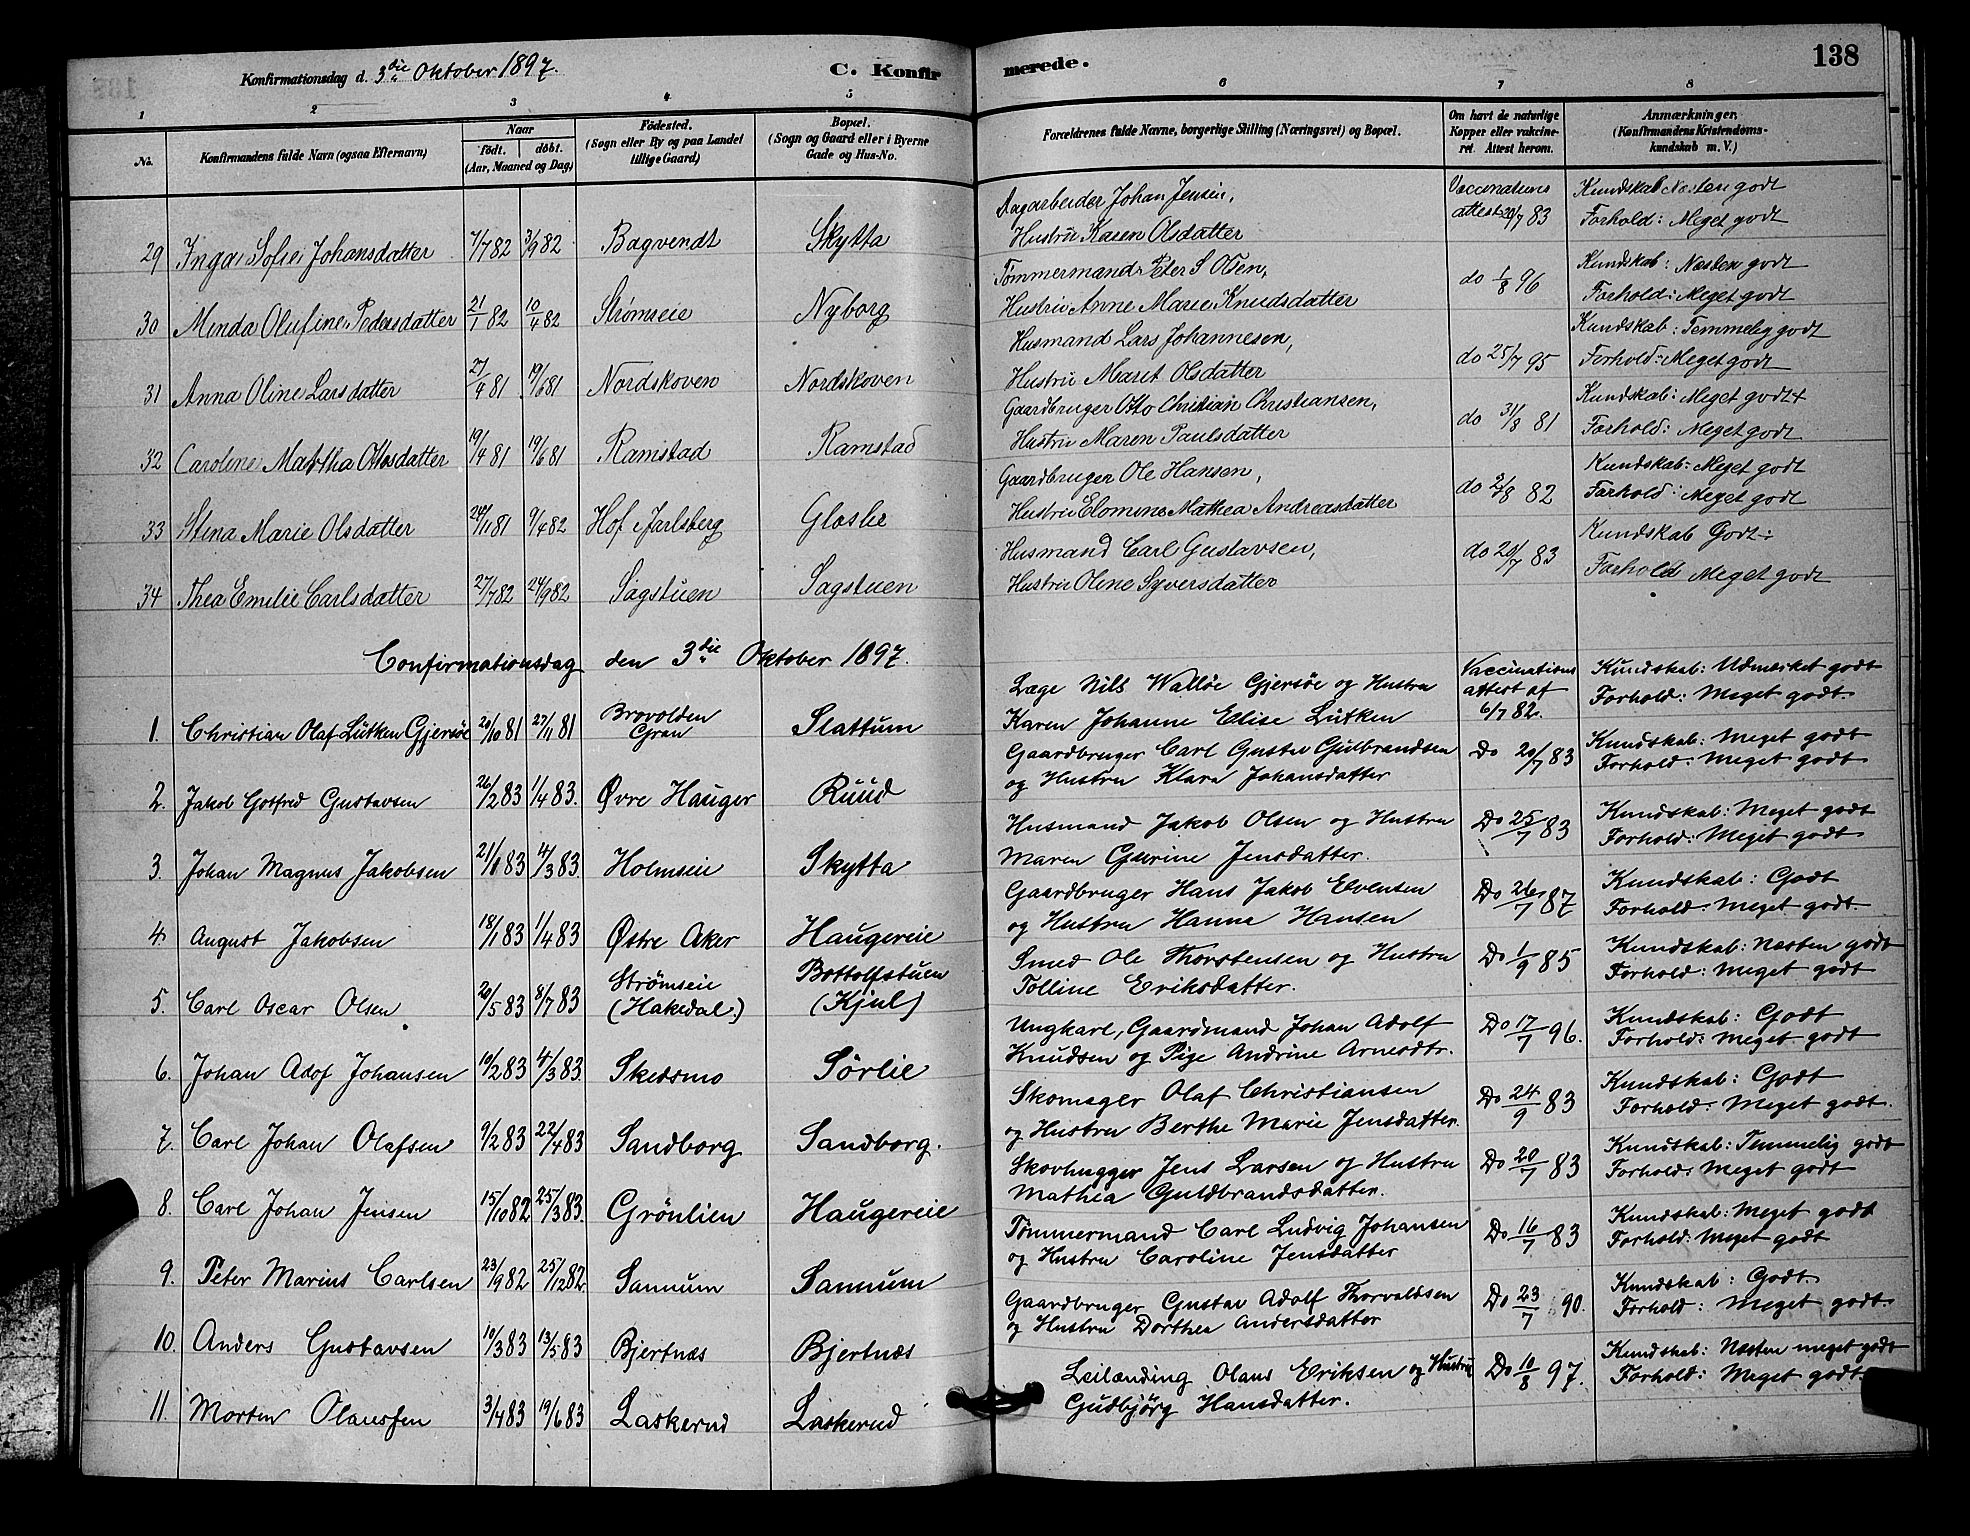 Konfirmationsdag d. 3die Oktober 1897.
C. Konfirmerede.
138
1 2 3 4 5 6 7 8
No.
Konfirmandens fulde Navn (ogsaa Efternavn)
Naar
Født. døbt.
(Aar, Maaned og Dag)
Fødested.
(Sogn eller By og paa Landet
tillige Gaard)
Bopæl.
(Sogn og Gaard eller i Byerne
Gade og Hus-No.
Forældrenes fulde Navne, borgerlige Stilling (Næringsvei) og Bopæl.
Om havt de naturlige
Kopper eller vakcine-
ret. Attest herom.
Anmærkninger,
(Konfirmandens Kristendoms-
kundskab m. V.)
Dagarbeider Johan Jensen, Vaccinations Kundskab Næsten godt
29 Inga Sofie Johansdatter 7/7 82 3/9 82 Bagvendt Skytta Hustru Karen Olsdatter attest 20/7 83 Forhold: Meget godt
Tømmermand Peter S Olsen, Kundskab: Næsten godt
30 Minda Olufine Pedersdatter 21/1 82 10/4 82 Strømseie Nyborg Hustru Anne Marie Knudsdatter do 1/8 96 Forhold: Meget godt
Husmand Lars Johannesen, Kundskab: Temmelig godt
31 Anna Oline Larsdatter 27/4 81 19/6 81 Nordskoven Nordskoven Hustru Marit Olsdatter do 25/7 95 Forhold: Meget godt
Gaardbruger Otto Christian Christiansen, Kundskab: Meget godt
32 Caroline Martha Ottosdatter 19/4 81 19/6 81 Ramstad Ramstad Hustru Maren Paulsdatter do 31/8 81 Forhold: Meget godt
Gaardbruger Ole Hansen, Kundskab: Meget godt
33 Stina Marie Olsdatter 24/11 81 9/4 82 Hof Jarlsberg Glaslie Hustru Elomine Mathea Andreasdatter do 2/8 82 Forhold: Meget godt
Husmand Carl Gustavsen, Kundskab Godt
34 Thea Emilie Carlsdatter 27/7 82 24/9 82 Sagstuen Sagstuen Hustru Oline Syversdatter do 20/7 83 Forhold Meget godt
Confirmationsdag den 3die Oktober 1897.
Læge Nils Walløe Gjersøe og Hustru Vaccinations attest af Kundskab: Udmerket godt
1. Christian Olaf Lütken Gjersøe 20/10 81 27/11 81 Brovolden Gran Slattum Karen Johanne Elise Lütken 6/7 82. Forhold: Meget godt.
Gaardbruger Carl Gustav Gulbrandsen Kundskab: Meget godt
2. Jakob Gotfred Gustavsen 26/2 83 1/4 83. Øvre Hauger Ruud og Hustru Klara Johansdatter Do 20/7 83 Forhold: Meget godt
Husmand Jakob Olsen og Hustru Kundskab: Meget godt
3. Johan Magnus Jakobsen 21/1 83 4/3 83. Holmseie Skytta Maren Gurine Jensdatter. Do 25/7 83 Forhold: Meget godt
Gaardbruger Hans Jakob Evensen Kundskab: Godt
4. August Jakobsen 18/1 83 1/4 83 Østre Aker Haugereie og Hustru Hanna Hansen Do 26/7 87 Forhold: Meget godt.
Smed Ole Thorstensen og Hustru Kundskab: Næsten godt
5. Carl Oscar Olsen 20/5 83 8/7 83 Strømseie (Hakedal.) Bottolfstuen (Kjul) Tolline Eriksdatter. Do 1/9 85 Forhold: Meget godt
Ungkarl, Gaardmand Johan Adolf Kundskab: Godt
6. Johan Adof Johansen 10/2 83 4/3 83. Skedsmo Sørlie Knudsen og Pige Andrine Arnesdtr. Do 17/7 96. Forhold: Meget godt
Skomager Olaf Christiansen Kundskab: Godt
7. Carl Johan Olafsen 9/2 83 22/4 83 Sandborg Sandborg. og Hustru Berthe Marie Jensdatter. Do 24/9 83 Forhold: Meget godt.
Skovhugger Jens Larsen og Hustru Kundskab: Temmelig godt
8. Carl Johan Jensen 15/10 82 25/3 83. Grönlien Haugereie Mathea Guldbrandsdatter. Do 20/7 83 Forhold: Meget godt
Tømmermand Carl Ludvig Johansen Kundskab: Meget godt
9. Peter Marius Carlsen 23/9 82 25/12 82. Sannum Sannum og Hustru Caroline Jensdatter Do 16/7 83 Forhold: Meget godt
Gaardbruger Gustav Adolf Thorvaldsen Kundskab: Godt.
10. Anders Gustavsen 10/3 83 13/5 83 Bjertnæs Bjertnæs og Hustru Dorthea Andersdatter Do 23/7 90. Forhold: Meget godt.
Leilænding Olaus Eriksen og Hustru Kundskab: Næsten meget godt
11. Morten Olaussen 3/4 83 19/6 83 Laskerud Laskerud Gudbjörg Hansdatter. Do 10/8 97. Forhold: Meget godt